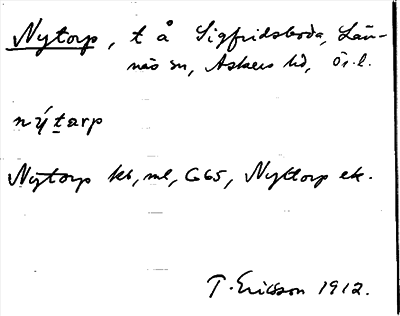 Nytorp, t å Sigfridsboda, Län-
näs sn, Askers hd, Ör.l.
nýtarp
Nytorp kb, ml, G65, Nyttorp ek.
T. Ericsson 1912.